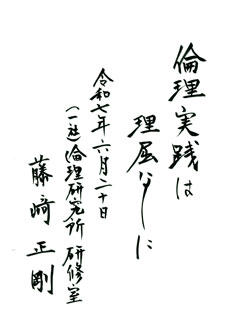 倫理実践は
理屈なしに
令和七年六月二十日
(一社)倫理研究所 研修室
藤﨑 正剛